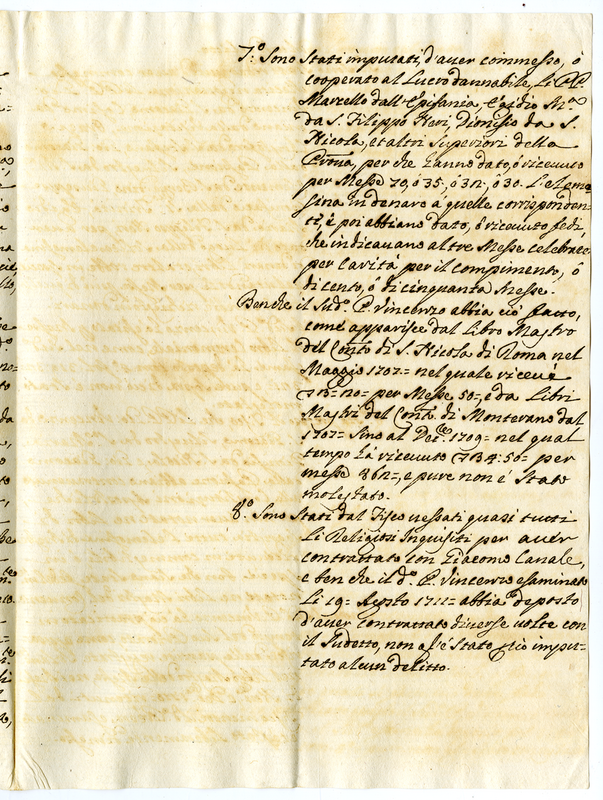 7.º Sono Stati imputati, d'auer commesso, ò
cooperato al Lucro dannabile, Li PP.
Marcello dall'Epifania, Egidio M.ª
da S. Filippo Neri, Dionisio da S.
Nicola, et altri Superiori della
Prou.ª, per che hanno dato, ò riceuuto
per Messe 70, ò 35, ò 32, ò 30. L'elemo
sina in denaro à quelle corrisponden-
ti, e poi abbiano dato, ò riceuuto fedi,
che indicauano altre Messe celebrate
per Carità per il compimento, ò
di cento, ò di cinquanta Messe.
Benche il Sud.º P. Vincenzo abbia ciò fatto,
come apparisce dal Libro Mastro
del Con.to di S. Nicola di Roma nel
Maggio 1707= nel quale riceuè
per Messe 50=, e da Libri
Mastri del Con.to di Monterano dal
1707= Sino al Dec.bre 1709= nel qual
tempo hà riceuuto 34:50= per
messe 862=, e pure non è Stato
molestato.
8.º Sono Stati dal Fisco uessati quasi tutti
Li Religiosi Inquisiti per auer
contrattato con Giacomo Canale,
e ben che il d.º P. Vincenzo esaminato
Li 19= Agosto 1711= abbia deposto
d'auer contrattato diuerse uolte con
il Sudetto, non gl'è Stato ciò impu-
tato alcun delitto.